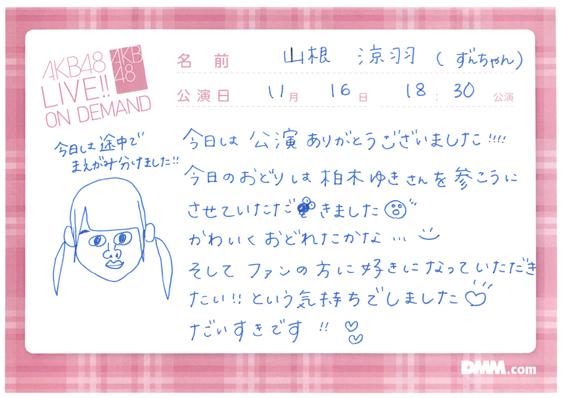 AKB48
LIVE!!
ON DEMAND
AKB
48
名前 山根 涼羽 (ずんちゃん)
公演日 11月 16日 18:30 公演
今日は途中で
まえがみ分けました!!
今日は 公演 ありがとうございました!!!!
今日のおどりは 柏木ゆきさんを 参こうに
させていただきました
かわいく おどれたかな…
そして ファンの方に 好きに なって いただき
たい!! という 気持ちで しました
だいすきです !!
DMM.com